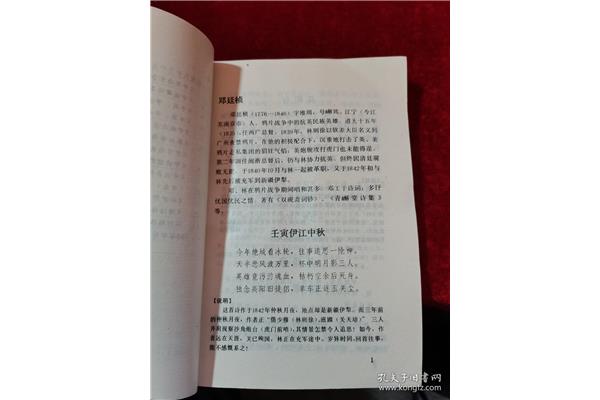 邓廷桢
邓廷桢(1776—1846)字维周,号嶰筠,江宁(今江
苏南京市)人,鸦片战争中的抗英民族英雄。道光十五年
(1835),任两广总督。1839年,林则徐以钦差大臣名义到
广州查禁鸦片,在他的积极配合下,沉重地打击了英、美
鸦片走私集团的猖狂气焰,英炮舰攻打虎门也未能得逞。
第二年调任闽浙总督后,仍与林协力抗英。但终因清廷腐
败无能,于1840年10月与林一起被革职,又于1842年和与
林先后被充军到新疆伊犁。
邓、林在鸦片战争期间唱和甚多。邓工于诗词;多抒
忧国忧民之情。著有《双砚斋词钞》、《青嶰堂诗集》
等。
壬寅伊江中秋
今年绝域看冰轮,往事追思一怆神。
天半悲风波万里,杯中明月影三人。
英雄竟污游魂血,枯朽空余后死身。
独念炎阳旧徒侣,单车正逐玉关尘。
【说明】
这首诗作于1842年仲秋月夜,地点却是新疆伊犁。而三年前
的仲秋月夜,作者正“偕少穆(林则徐)、滋圃(关天培)”三人
并肩视察沙角炮台(虎门前哨),其情景怎禁令人追思!如今,作
者远在天涯,关已殉国,林正在充军途中。岁异时同,回首往事,
能不感慨系之!
1
孔夫子旧书网
www.kongfz.com